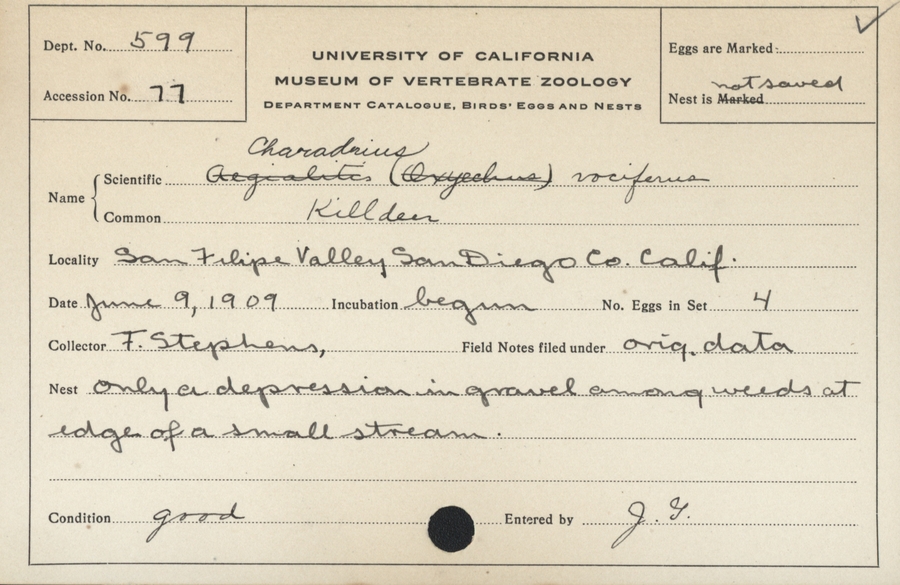 Dept. No. 599
Accession No. 77
UNIVERSITY OF CALIFORNIA
MUSEUM OF VERTEBRATE ZOOLOGY
DEPARTMENT CATALOGUE, BIRDS' EGGS AND NESTS
Eggs are Marked: ✓
not saved
Nest is Marked
Charadrius
Name { Scientific Aegialitis (Oxyechus) vociferus
Common Killdeer
Locality San Filipe Valley San Diego Co. Calif.
Date June 9, 1909 Incubation begun No. Eggs in Set 4
Collector F. Stephens, Field Notes filed under orig. data
Nest only a depression in gravel among weeds at
edge of a small stream.
Condition good Entered by J. G.